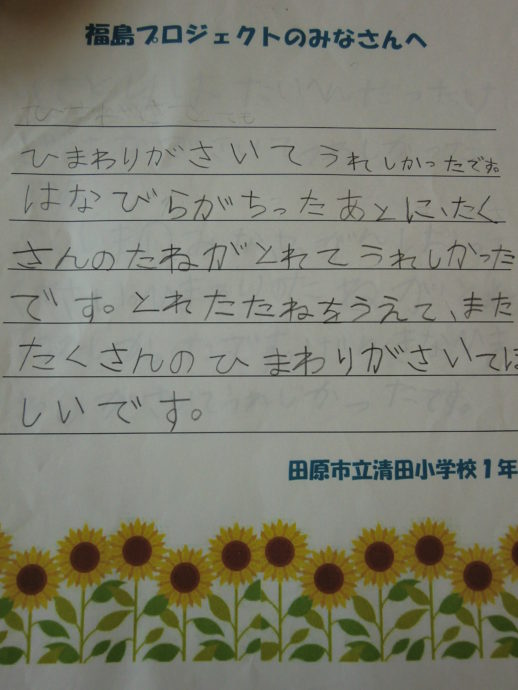 福島プロジェクトのみなさんへ
ひまわりがさいてうれしかったです。
はなびらがちったあとに、たく
さんのたねがとれてうれしかった
です。とれたたねをうえて、また
たくさんのひまわりがさいてほ
しいです。
田原市立清田小学校1年